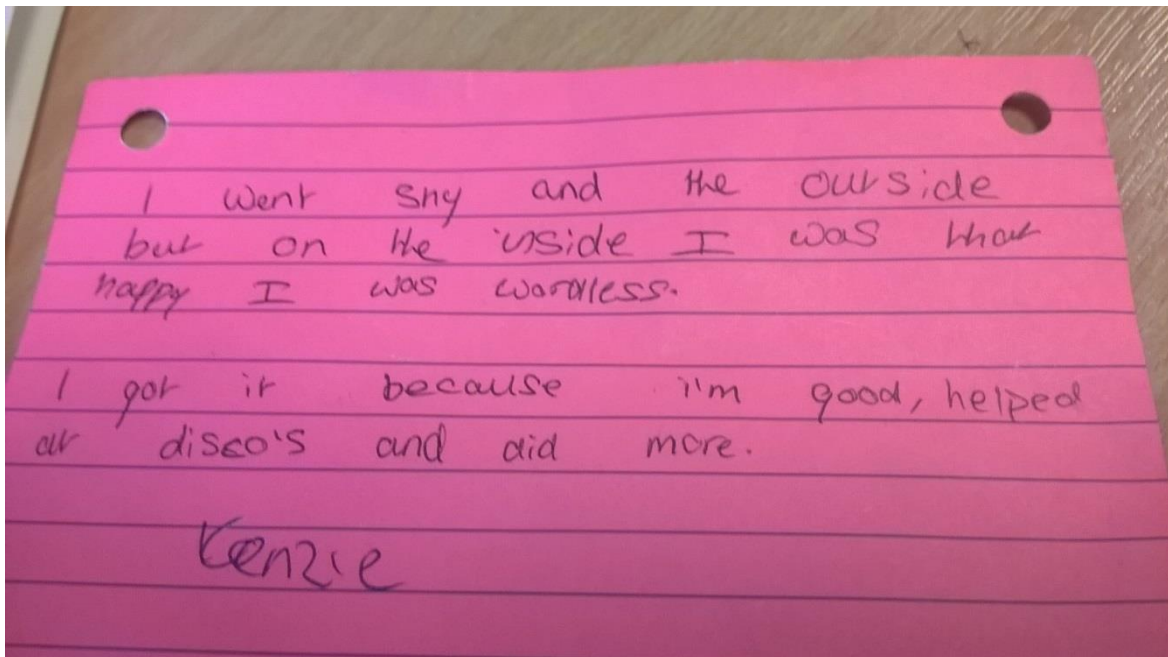 I went shy and the outside
but on the inside I was that
happy I was wordless.
I got it because i'm good, helped
at disco's and did more.
Kenzie